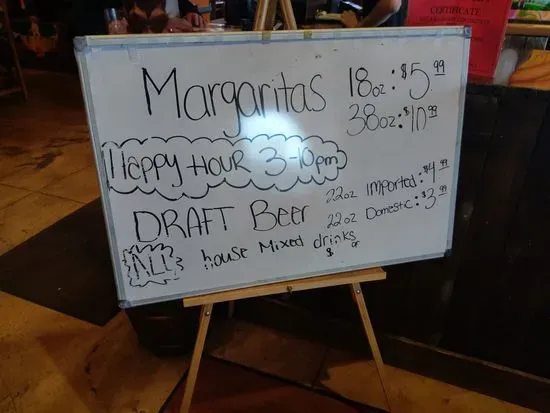 CERTIFICATE
Margaritas 18oz: $5.99
38oz: $10.99
Happy Hour 3-10pm
DRAFT Beer 22oz Imported: $4.99
22oz Domestic: $3.99
ALL house Mixed drinks
$